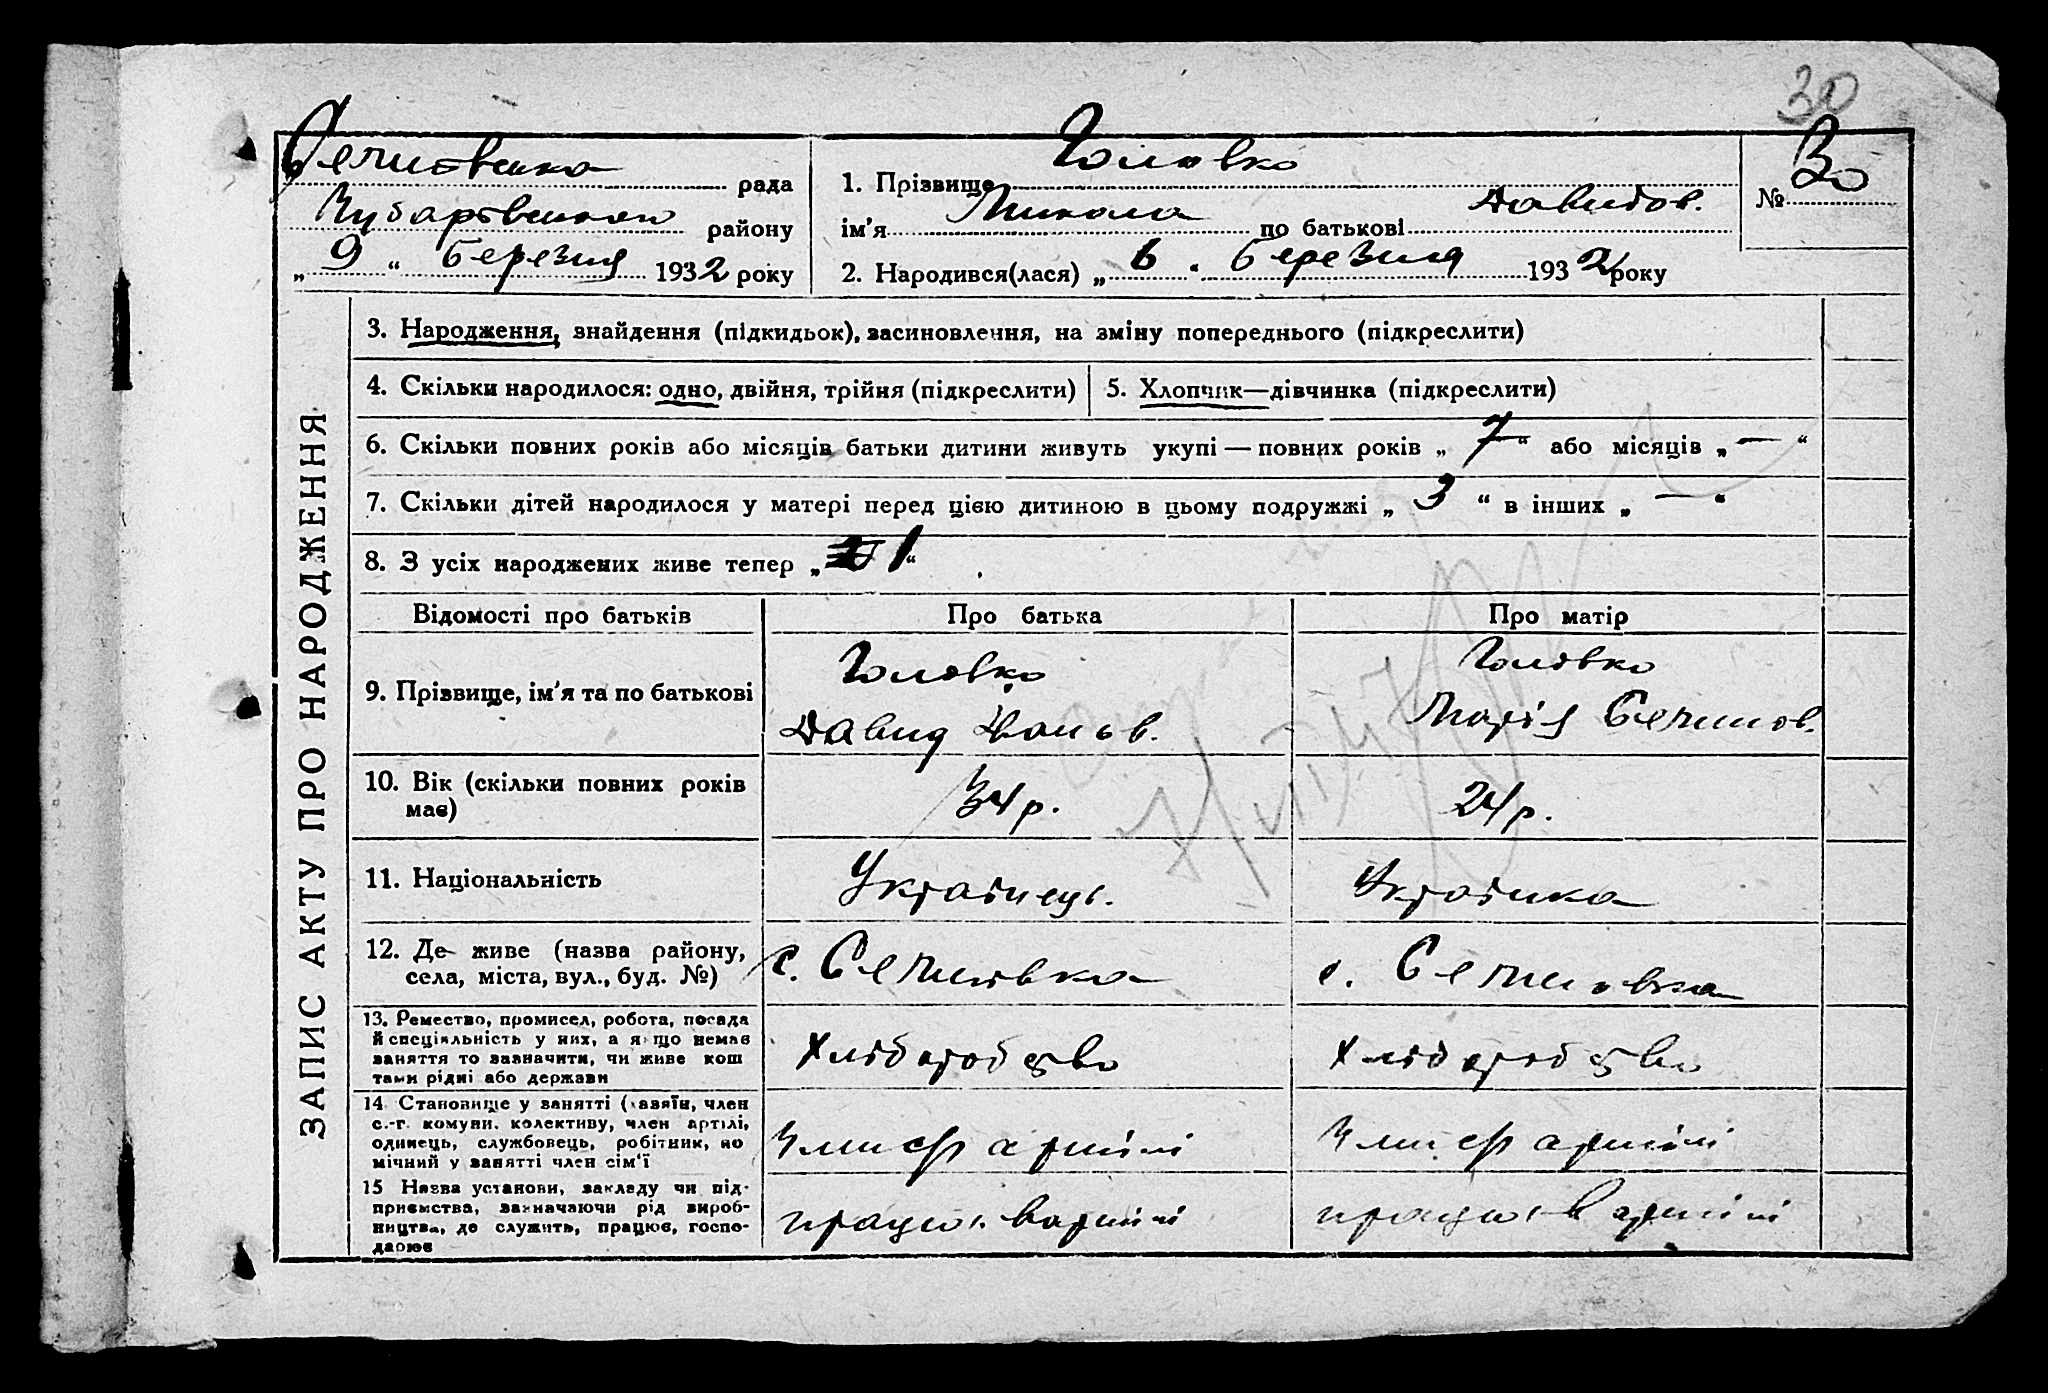 30
Семенівська рада
району
„ 9 “ Березня 1932 року
1. Прізвище Головко
ім'я Микола по батькові Давидов.
№ 30
2. Народився(лася) „ 6 “ Березня 1932 року
ЗАПИС АКТУ ПРО НАРОДЖЕННЯ
3. Народження, знайдення (підкидьок), засиновлення, на зміну попереднього (підкреслити)
4. Скільки народилося: одно, двійня, трійня (підкреслити)
5. Хлопчик—дівчинка (підкреслити)
6. Скільки повних років або місяців батьки дитини живуть укупі — повних років „ 7 “ або місяців „ — “
7. Скільки дітей народилося у матері перед цією дитиною в цьому подружжі „ 3 “ в інших „ — “
8. З усіх народжених живе тепер „ 1 “
Відомості про батьків
Про батька
Про матір
9. Прізвище, ім'я та по батькові
Головко
Давид Іванов.
Головко
Марія Семенов.
10. Вік (скільки повних років
має)
34 р.
24 р.
11. Національність
Українець.
Українка
12. Де живе (назва району,
села, міста, вул., буд. №)
с. Семенівка
с. Семеновка
13. Ремество, промисел, робота, посада
й спеціяльність у них, а якщо немає
заняття то зазначити, чи живе кош
тами рідні або держави
Хліборобство
Хліборобство
14. Становище у занятті (хазяїн, член
с.-г. комуни, колективу, член артілі,
одинець, службовець, робітник, по
мічний у занятті член сім'ї
Член с/г артілі
Член с/г артілі
15 Назва установи, закладу чи під-
приємства, зазначаючи рід вироб-
ництва, де служить, працює, госпо-
дарює
працює в артілі
працює в артілі